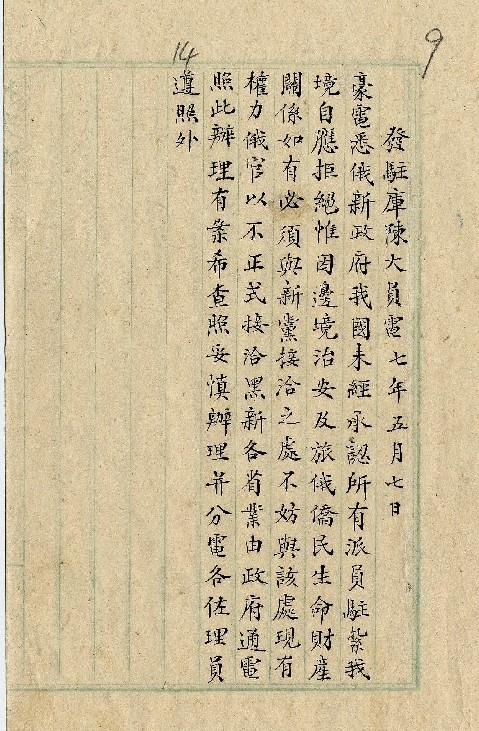 9
14
發駐庫陳大員電七年五月七日
豪電悉俄新政府我國未經承認所有派員駐紮我
境自應拒絕惟因邊境治安及旅俄僑民生命財產
關係如有必須與新黨接洽之處不妨與該處現有
權力俄官以不正式接洽黑新各省業由政府通電
照此辦理有案希查照妥慎辦理并分電各佐理員
遵照外